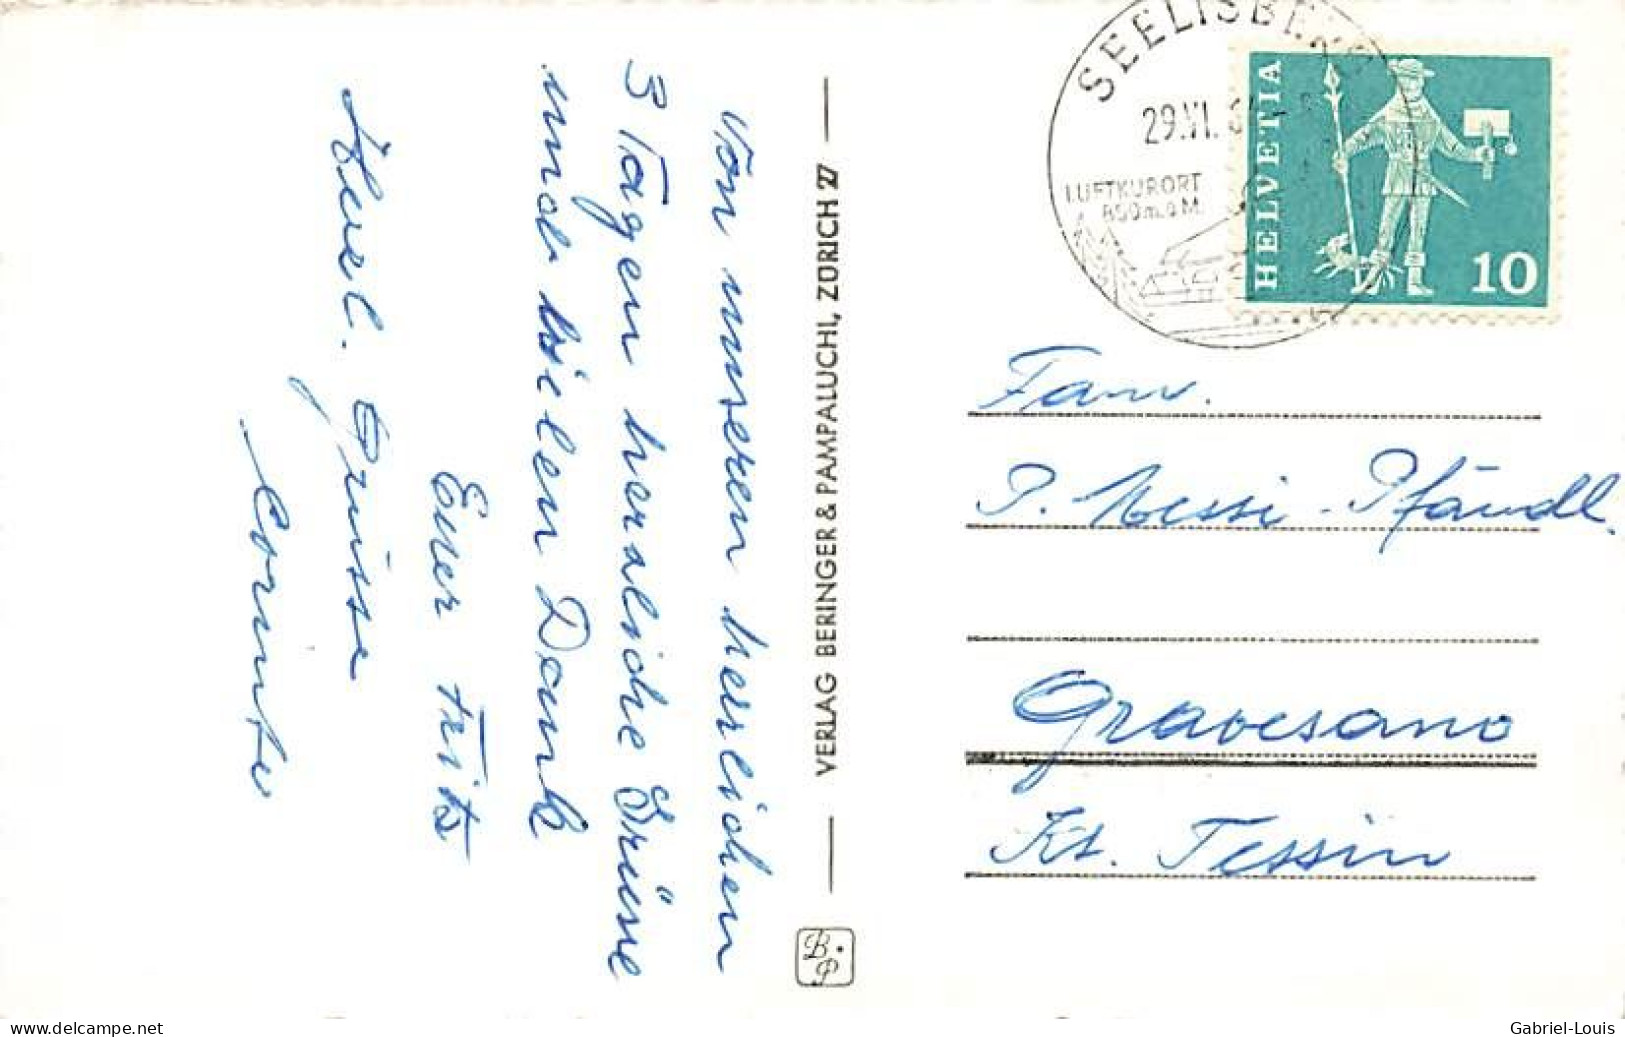 Von unseren herrlichen
3 Tagen herzliche Grüsse
und vielen Dank
Euer Fritz
Herzl. Grüsse
VERLAG BERINGER & PAMPALUCHI, ZÜRICH 27
B. P
SEELISBERG
29.VI.
LUFTKURORT
850 m.ü M.
HELVETIA
10
Fam.
P. Nessi-Pfändl.
Gravesano
Kt. Tessin
www.delcampe.net
Gabriel-Louis